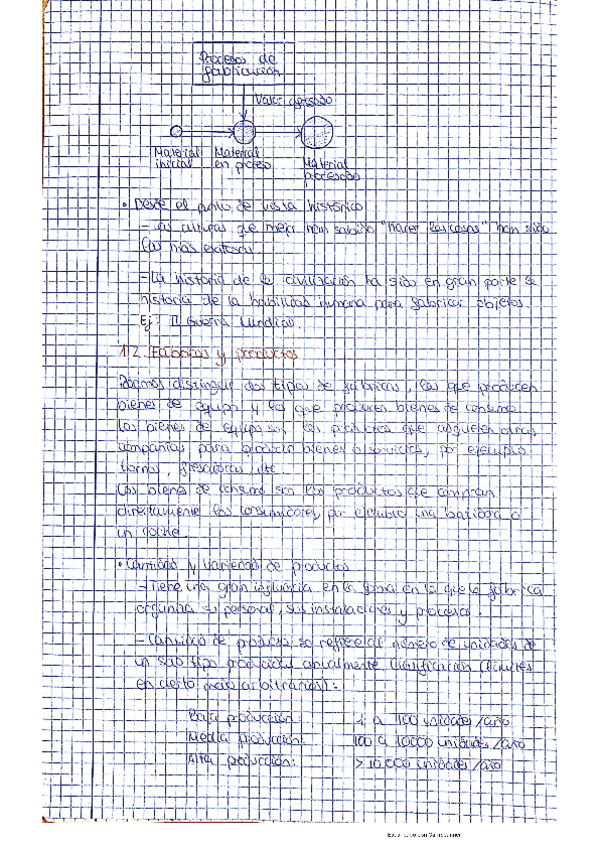 Proceso de
fabricación
Valor agregado
Material Material Material
inicial en proceso procesado
• Desde el punto de vista histórico
- Las culturas que mejor han sabido "hacer las cosas" han sido
las más exitosas
- La historia de la civilización ha sido en gran parte la
historia de la habilidad humana para fabricar objetos.
Ej: II Guerra Mundial.
1.2. Fábricas y productos
Podemos distinguir dos tipos de fábricas, las que producen
bienes de equipo y las que producen bienes de consumo.
Los bienes de equipo son los productos que adquieren otras
compañías para producir bienes o servicios, por ejemplo
tornos, fresadoras, etc.
Los bienes de consumo son los productos que compran
directamente los consumidores, por ejemplo una batidora o
un coche.
• Cantidad y variedad de productos
- Tiene una gran influencia en la forma en la que la fábrica
organiza su personal, sus instalaciones y procesos.
- Cantidad de producto se refiere al número de unidades de
un solo tipo producidas anualmente. Clasificación (límites
en cierto modo arbitrarios):
Baja producción: 1 a 100 unidades/año
Media producción: 100 a 10000 unidades/año
Alta producción: > 10.000 unidades/año